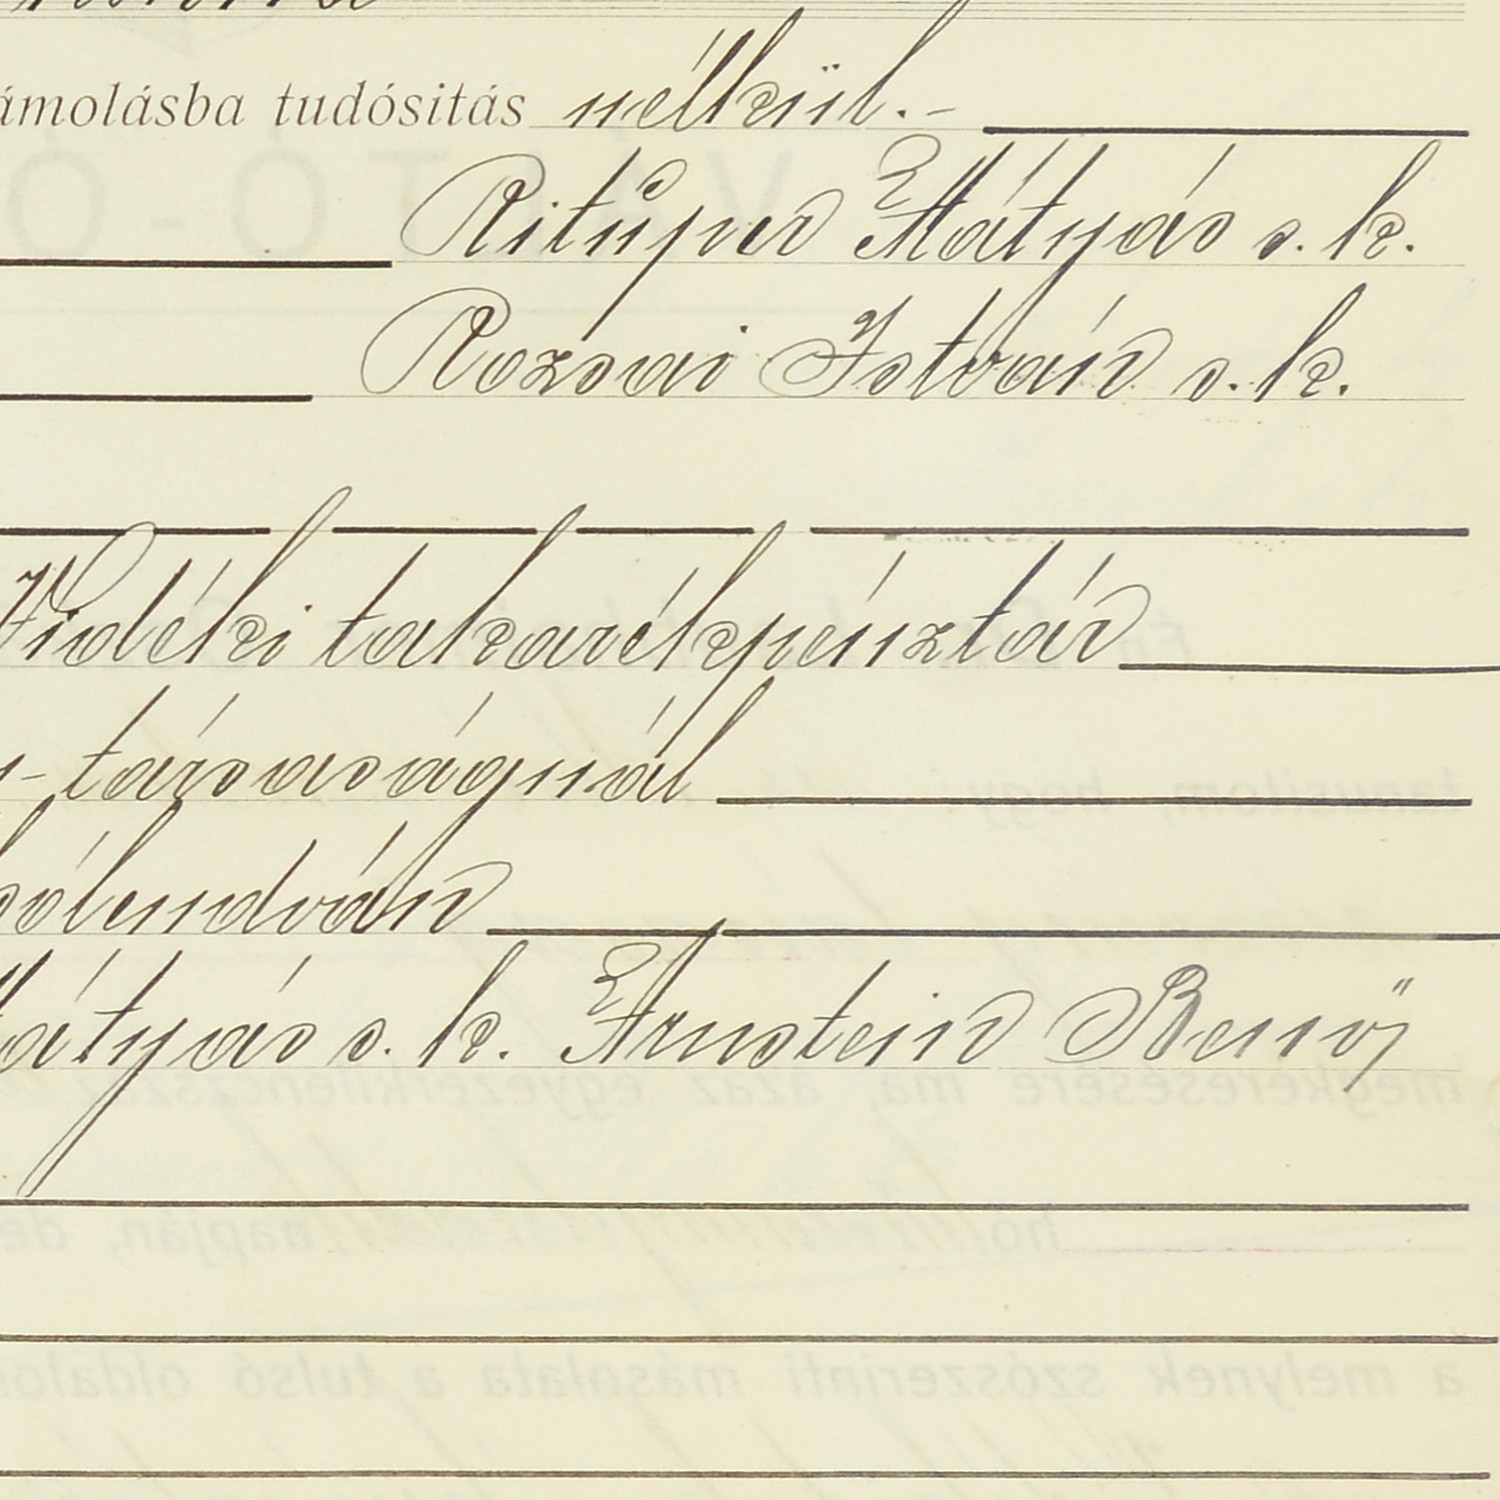 ámolásba tudósitás nélkül.-
Ritúper Mátyás s. k.
Rozsai István s. k.
Vidéki takarékpénztár
- társaságnál
sólendván
átyás s. k. Arnstein Benő